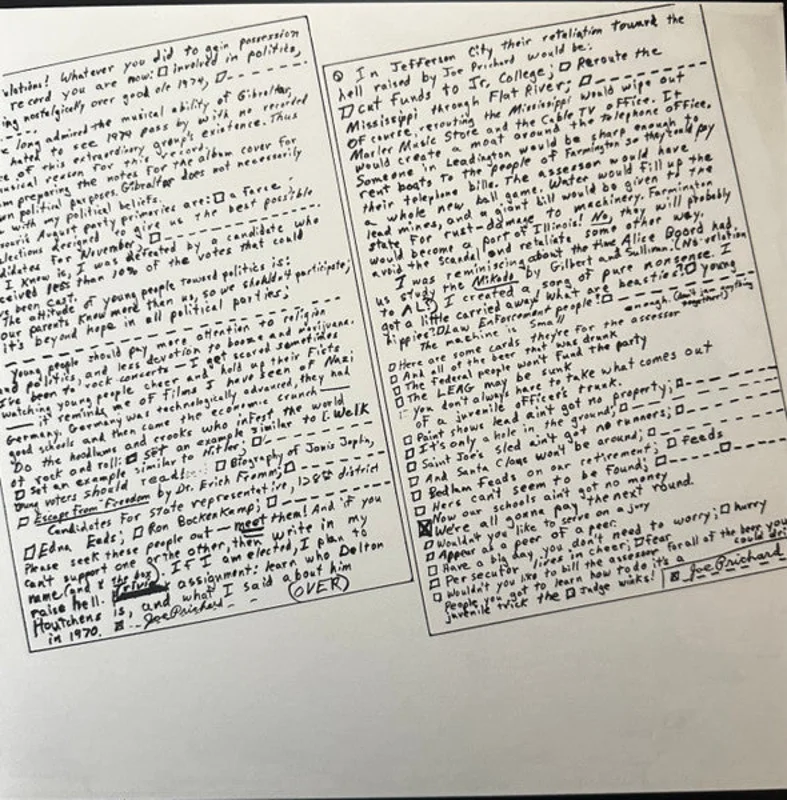 ulations! Whatever you did to gain possession
record you are now: □ involved in politics,
ing nostalgically over good ole 1974, □
long admired the musical ability of Gibraltar,
hated to see 1974 pass by with no recorded
e of this extraordinary group's existence. Thus
musical reason for this record.
am preparing the notes for the album cover for
wn political purposes. Gibraltar does not necessarily
with my political beliefs.
souris August party primaries are: □ a farce;
elections designed to give us the best possible
didates for November; □
I know is, I was defeated by a candidate who
ceived less than 30% of the votes that could
ve been cast.
The attitude of young people toward politics is:
our parents know more than us, so we shouldn't participate;
it's beyond hope in all political parties;
Young people should pay more attention to religion
and politics, and less devotion to booze and marijuana.
I've been to rock concerts — I get scared sometimes
watching young people cheer and hold up their fists
— it reminds me of films I have seen of Nazi
Germany. Germany was technologically advanced, they had
good schools and then came the economic crunch
Do the hoodlums and crooks who infest the world
of rock and roll: □ set an example similar to L. Welk
□ Set an example similar to Hitler; □
Young voters should read: □ Biography of Janis Joplin,
□ Escape from Freedom by Dr. Erich Fromm; □
Candidates for State representative, 128th district
□ Edna Eads; □ Ron Bockenkamp; □
Please seek these people out — meet them! And if you
can't support one or the other, then write in my
name (and X the box). If I am elected, I plan to
raise hell. Trivia assignment: learn who Delton
Houtchens is, and what I said about him
in 1970. ☒ Joe Prichard (OVER)
In Jefferson City their retaliation toward the
hell raised by Joe Prichard would be:
□ Cut funds to Jr. College; □ Reroute the
Mississippi through Flat River; □
Of course, rerouting the Mississippi would wipe out
Marler Music Store and the Cable TV office. It
would create a moat around the telephone office.
Someone in Leadington would be sharp enough to
rent boats to the people of Farmington so they could pay
their telephone bills. The assessor would have
a whole new ball game. Water would fill up the
lead mines, and a giant bill would be given to the
state for rust-damage to machinery. Farmington
would become a part of Illinois! No, they will probably
avoid the scandal and retaliate some other way.
I was reminiscing about the time Alice Doord had
us study the Mikado by Gilbert and Sullivan. (No relation
to AL?) I created a song of pure nonsense. I
got a little carried away! What are beasties? □ young
hippies? □ Law Enforcement people? □
The machine is small enough. (Ain't jam anything together!)
□ Here are some cards they're for the assessor
□ And all of the beer that was drunk
□ The federal people won't fund the party
□ The LEAG may be sunk
You don't always have to take what comes out
of a juvenile officer's trunk.
□ Paint shows lead ain't got no property; □
□ It's only a hole in the ground; □
□ Saint Joe's sled ain't got no runners; □
□ And Santa Claus won't be around; □
□ Bedlam feads on our retirement; □ feeds
□ Hers can't seem to be found; □
□ Now our schools ain't got no money
☒ We're all gonna pay the next round.
□ Wouldn't you like to serve on a jury
□ Appear as a peer of a peer.
□ Have a big day, you don't need to worry; □ hurry
□ Persecutor lives in cheer; □ fear
□ Wouldn't you like to bill the assessor for all of the beer you could dri
People you got to learn how to do it's a
juvenile trick the □ Judge winks! ☒ Joe Prichard